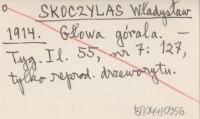 SKOCZYLAS Władysław
1914. Głowa górala. —
Tyg. Il. 55, nr 7: 127,
tylko reprod. drzeworytu.